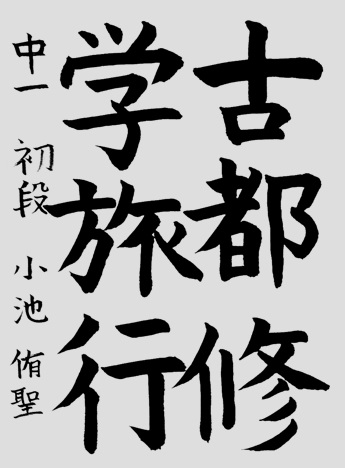 古都修
学旅行
中一 初段 小池 侑聖